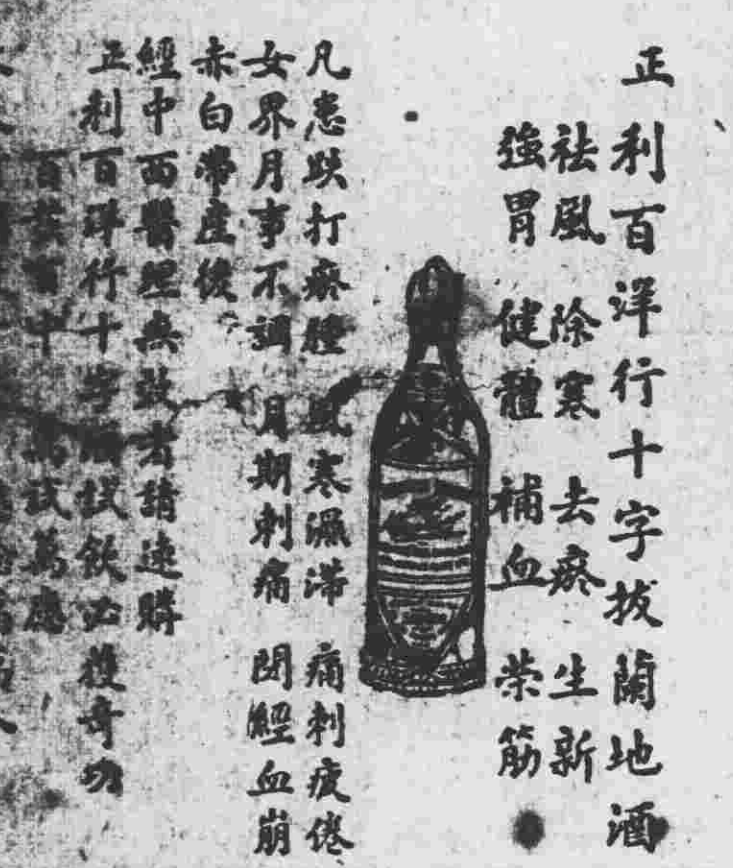 正利百洋行十字拔蘭地酒
祛風 除寒 去瘀 生新
強胃 健體 補血 荣筋
凡患跌打瘀腫 風寒濕滯 痛刺疲倦
女界月事不調 月期刺痛 閉經血崩
赤白帶產後
經中西醫理無效者請速購
正利百洋行十字酒試飲必獲奇功
百發百中 試萬應